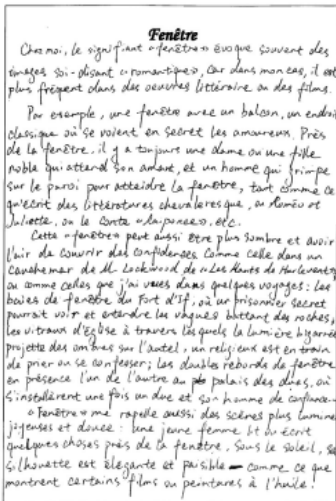 Fenêtre
Chez moi, le signifiant «fenêtre» évoque souvent des
images soi-disant «romantiques», car dans mon cas, il est
plus fréquent dans des oeuvres littéraire ou des films.
Par exemple, une fenêtre avec un balcon, un endroit
classique où se voient en secret les amoureux. Près
de la fenêtre, il y a toujours une dame ou une fille
noble qui attend son amant, et un homme qui grimpe
sur le paroi pour atteidre la fenêtre, tout comme ce
qu'écrit des littératures chevaleresque, ou Roméo et
Juliette, ou le conte «Raponce», etc.
Cette «fenêtre» peut aussi être plus sombre et avoir
l'air de couvrir des confidenses comme celle dans un
cauchemar de M. Lockwood de «Les Hauts de Hurlevents»
ou comme celles que j'ai vues dans quelques voyages: les
baies de fenêtre du Fort d'If, où un prisonnier secret
pourrait voir et entendre les vagues battant des roches,
les vitraux d'église à travers lesquels la lumière bizarre
projette des ombres sur l'autel, un religieux est en train
de prier ou se confesser; les doubles rebords de fenêtre
en présence l'un de l'autre au palais des ducs, où
s'installèrent une fois un duc et son homme de confiance.
«Fenêtre» me rapelle aussi des scènes plus lumineuses,
joyeuses et douce: une jeune femme lit ou écrit
quelques choses près de la fenêtre, sous le soleil, sa
silhouette est élégante et paisible — comme ce que
montrent certains films ou peintures à l'huile.